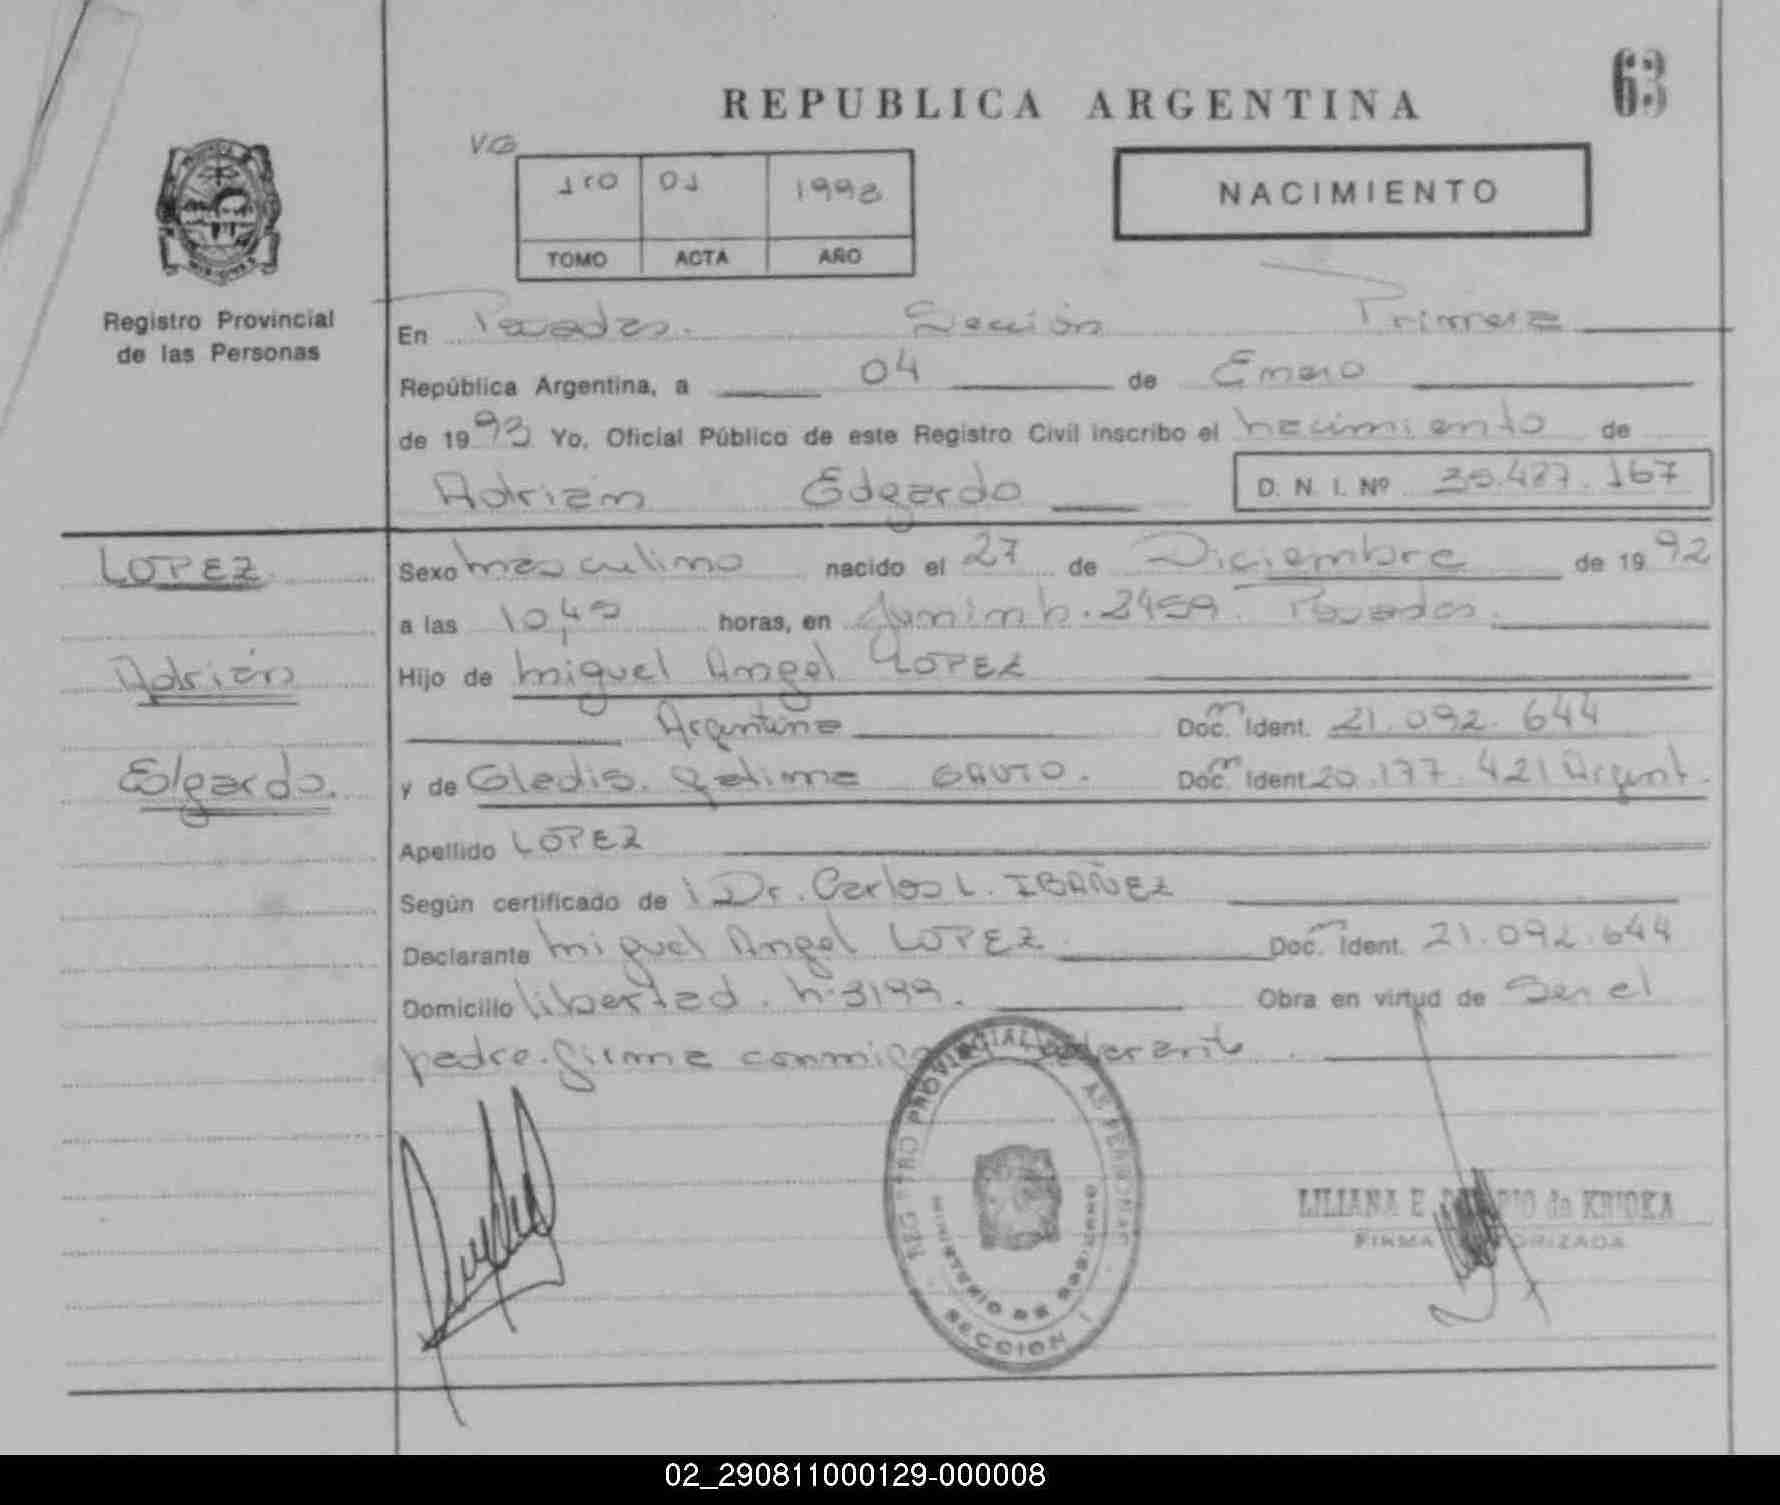 63
REPUBLICA ARGENTINA
VG
1ro 01 1993
TOMO ACTA AÑO
NACIMIENTO
Registro Provincial
de las Personas
En Posadas. Sección Primera
República Argentina, a 04 de Enero
de 1993 Yo, Oficial Público de este Registro Civil inscribo el nacimiento de
Adrián Edgardo D. N. I. Nº 36.427.167
LOPEZ
Adrián
Edgardo.
Sexo masculino nacido el 27 de Diciembre de 1992
a las 10,45 horas, en Junin n. 2459. Posadas.
Hijo de Miguel Angel LOPEZ
Argentina Doc. Ident. 21.092.644
y de Gladis. GAUTO. Doc. Ident. 20.177.421 Argent.
Apellido LOPEZ
Según certificado de Dr. Carlos L. IBAÑEZ
Declarante Miguel Angel LOPEZ Doc. Ident. 21.092.644
Domicilio libertad. n. 3199. Obra en virtud de Ser el
padre. firma conmigo
REGISTRO PROVINCIAL DE LAS PERSONAS
MINISTERIO DE GOBIERNO
SECCION 1
LILIANA E de KRIOKA
FIRMA AUTORIZADA
02_290811000129-000008